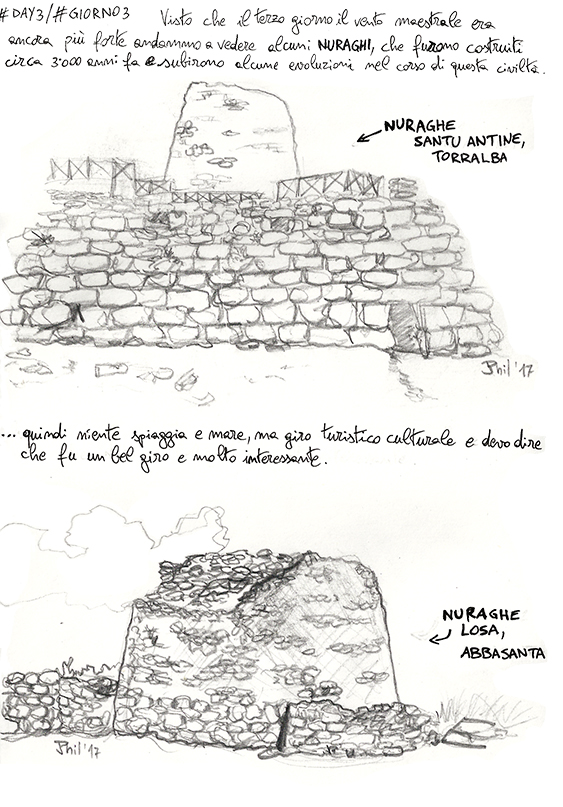 #DAY3/#GIORNO3 Visto che il terzo giorno il vento maestrale era
ancora più forte andammo a vedere alcuni NURAGHI, che furono costruiti
circa 3'000 anni fa e subirono alcune evoluzioni nel corso di questa civiltà.
NURAGHE
SANTU ANTINE,
TORRALBA
Phil '17
... quindi niente spiaggia e mare, ma giro turistico culturale e devo dire
che fu un bel giro e molto interessante.
NURAGHE
LOSA,
ABBASANTA
Phil '17